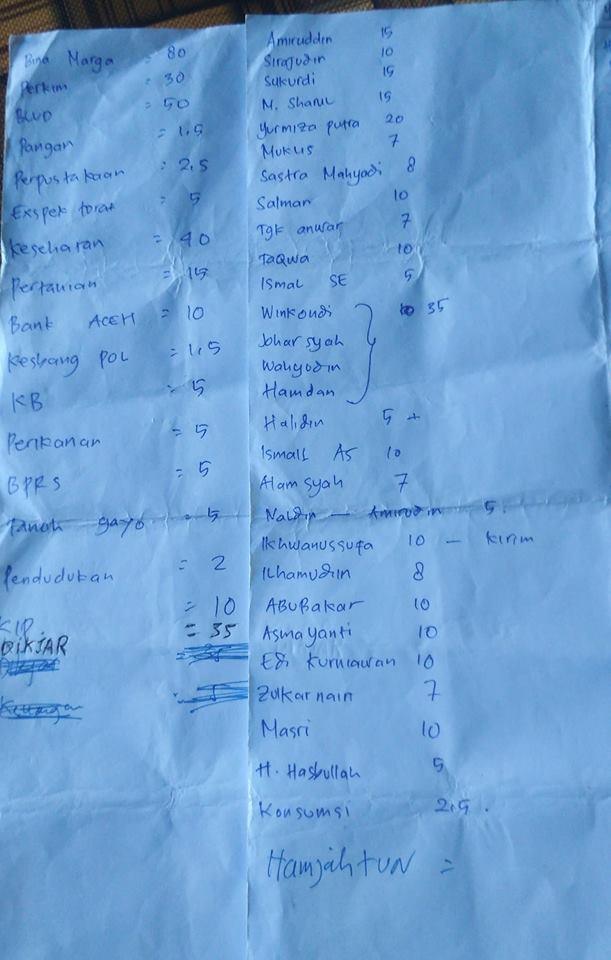 Bina Marga = 80
Perkim = 30
BLUD = 50
Pangan = 1.5
Perpustakaan = 2,5
Exspektorat = 5
Kesehatan = 40
Pertanian = 15
Bank ACEH = 10
Kesbang POL = 1.5
KB = 5
Perikanan = 5
BPRS = 5
Tanoh gayo = 5
Pendudukan = 2
KIP = 10
DIKJAR = 35
Amiruddin 15
Sirajudin 10
Sukurdi 15
M. Sharul 15
Yurmiza putra 20
Muklis 7
Sastra Mahyadi 8
Salman 10
Tgk anwar 7
TaQwa 10
Ismal SE 5
Winkondi 35
Johar syah
Wahyudin
Hamdan
Halidin 5 +
Ismail AS 10
Alam syah 7
Naldin — Amirudin 5.
Ikhwanussufa 10 — Kirim
Ilhamudin 8
ABUBakar 10
Asmayanti 10
Edi Kurniawan 10
Zulkarnain 7
Masri 10
H. Hasbullah 5
Konsumsi 2.5.
Hamjah TUN =